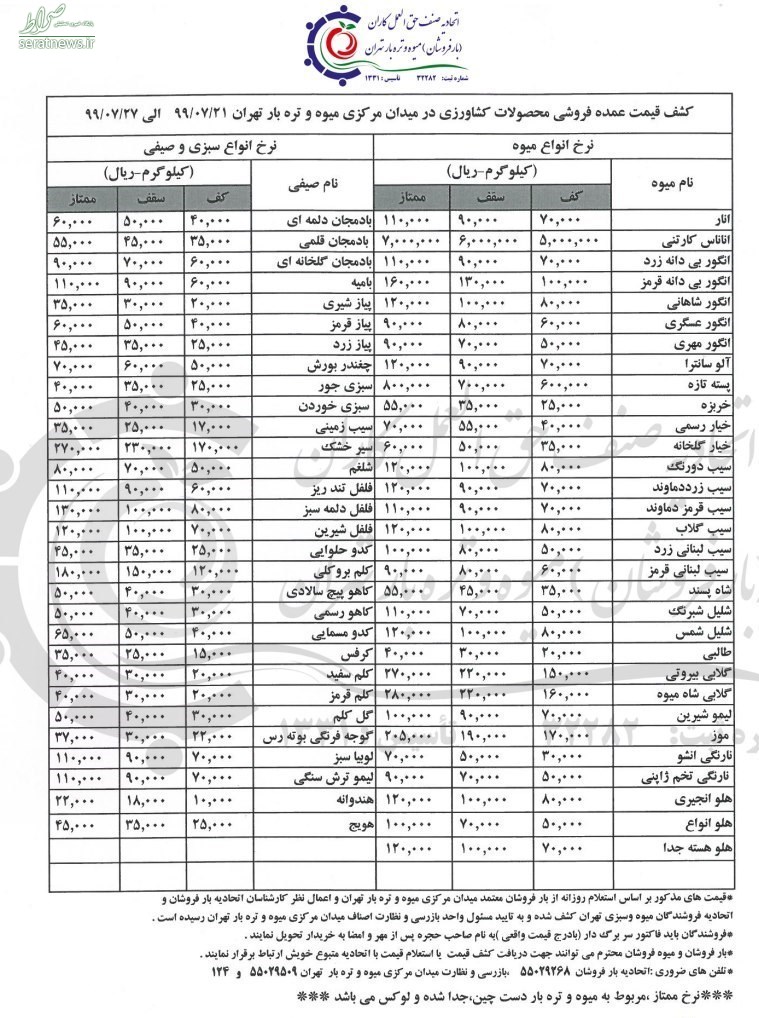 صراط
seratnews.ir
اتحادیه صنف حق العمل کاران
(بارفروشان) میوه و تره بار تهران
شماره ثبت: ۳۲۲۸۲ تاسیس: ۱۳۳۱
کشف قیمت عمده فروشی محصولات کشاورزی در میدان مرکزی میوه و تره بار تهران ۹۹/۰۷/۲۱ الی ۹۹/۰۷/۲۷
نرخ انواع میوه نرخ انواع سبزی و صیفی
نام میوه (کیلوگرم-ریال) نام صیفی (کیلوگرم-ریال)
کف سقف ممتاز کف سقف ممتاز
انار ۷۰,۰۰۰ ۹۰,۰۰۰ ۱۱۰,۰۰۰ بادمجان دلمه ای ۴۰,۰۰۰ ۵۰,۰۰۰ ۶۰,۰۰۰
اناناس کارتنی ۵,۰۰۰,۰۰۰ ۶,۰۰۰,۰۰۰ ۷,۰۰۰,۰۰۰ بادمجان قلمی ۳۵,۰۰۰ ۴۵,۰۰۰ ۵۵,۰۰۰
انگور بی دانه زرد ۷۰,۰۰۰ ۹۰,۰۰۰ ۱۱۰,۰۰۰ بادمجان گلخانه ای ۶۰,۰۰۰ ۷۰,۰۰۰ ۹۰,۰۰۰
انگور بی دانه قرمز ۱۰۰,۰۰۰ ۱۳۰,۰۰۰ ۱۶۰,۰۰۰ بامیه ۶۰,۰۰۰ ۹۰,۰۰۰ ۱۱۰,۰۰۰
انگور شاهانی ۸۰,۰۰۰ ۱۰۰,۰۰۰ ۱۲۰,۰۰۰ پیاز شیری ۲۰,۰۰۰ ۳۰,۰۰۰ ۳۵,۰۰۰
انگور عسگری ۶۰,۰۰۰ ۸۰,۰۰۰ ۹۰,۰۰۰ پیاز قرمز ۴۰,۰۰۰ ۵۰,۰۰۰ ۶۰,۰۰۰
انگور مهری ۵۰,۰۰۰ ۷۰,۰۰۰ ۹۰,۰۰۰ پیاز زرد ۲۵,۰۰۰ ۳۵,۰۰۰ ۴۵,۰۰۰
آلو سانترا ۷۰,۰۰۰ ۹۰,۰۰۰ ۱۲۰,۰۰۰ چغندر بورش ۵۰,۰۰۰ ۶۰,۰۰۰ ۷۰,۰۰۰
پسته تازه ۶۰۰,۰۰۰ ۷۰۰,۰۰۰ ۸۰۰,۰۰۰ سبزی جور ۲۵,۰۰۰ ۳۵,۰۰۰ ۴۰,۰۰۰
خربزه ۲۵,۰۰۰ ۳۵,۰۰۰ ۵۵,۰۰۰ سبزی خوردن ۳۰,۰۰۰ ۴۰,۰۰۰ ۵۰,۰۰۰
خیار رسمی ۴۰,۰۰۰ ۵۵,۰۰۰ ۷۰,۰۰۰ سیب زمینی ۱۷,۰۰۰ ۲۵,۰۰۰ ۳۵,۰۰۰
خیار گلخانه ۳۵,۰۰۰ ۵۰,۰۰۰ ۶۰,۰۰۰ سیر خشک ۱۷۰,۰۰۰ ۲۳۰,۰۰۰ ۲۷۰,۰۰۰
سیب دورنگ ۸۰,۰۰۰ ۱۰۰,۰۰۰ ۱۲۰,۰۰۰ شلغم ۵۰,۰۰۰ ۷۰,۰۰۰ ۸۰,۰۰۰
سیب زرددماوند ۷۰,۰۰۰ ۹۰,۰۰۰ ۱۲۰,۰۰۰ فلفل تند ریز ۶۰,۰۰۰ ۹۰,۰۰۰ ۱۱۰,۰۰۰
سیب قرمز دماوند ۷۰,۰۰۰ ۹۰,۰۰۰ ۱۱۰,۰۰۰ فلفل دلمه سبز ۸۰,۰۰۰ ۱۰۰,۰۰۰ ۱۳۰,۰۰۰
سیب گلاب ۸۰,۰۰۰ ۱۰۰,۰۰۰ ۱۲۰,۰۰۰ فلفل شیرین ۷۰,۰۰۰ ۱۰۰,۰۰۰ ۱۲۰,۰۰۰
سیب لبنانی زرد ۵۰,۰۰۰ ۸۰,۰۰۰ ۱۰۰,۰۰۰ کدو حلوایی ۲۵,۰۰۰ ۳۵,۰۰۰ ۴۵,۰۰۰
سیب لبنانی قرمز ۶۰,۰۰۰ ۸۰,۰۰۰ ۹۰,۰۰۰ کلم بروکلی ۱۲۰,۰۰۰ ۱۵۰,۰۰۰ ۱۸۰,۰۰۰
شاه پسند ۳۵,۰۰۰ ۴۵,۰۰۰ ۵۵,۰۰۰ کاهو پیچ سالادی ۳۰,۰۰۰ ۴۰,۰۰۰ ۵۰,۰۰۰
شلیل شبرنگ ۵۰,۰۰۰ ۷۰,۰۰۰ ۱۱۰,۰۰۰ کاهو رسمی ۳۰,۰۰۰ ۴۰,۰۰۰ ۵۰,۰۰۰
شلیل شمس ۸۰,۰۰۰ ۱۰۰,۰۰۰ ۱۲۰,۰۰۰ کدو مسمایی ۴۰,۰۰۰ ۵۰,۰۰۰ ۶۵,۰۰۰
طالبی ۲۰,۰۰۰ ۳۰,۰۰۰ ۴۰,۰۰۰ کرفس ۱۵,۰۰۰ ۲۵,۰۰۰ ۳۵,۰۰۰
گلابی بیروتی ۱۵۰,۰۰۰ ۲۲۰,۰۰۰ ۲۷۰,۰۰۰ کلم سفید ۲۰,۰۰۰ ۳۰,۰۰۰ ۴۰,۰۰۰
گلابی شاه میوه ۱۶۰,۰۰۰ ۲۲۰,۰۰۰ ۲۸۰,۰۰۰ کلم قرمز ۲۰,۰۰۰ ۳۰,۰۰۰ ۴۰,۰۰۰
لیمو شیرین ۷۰,۰۰۰ ۹۰,۰۰۰ ۱۰۰,۰۰۰ گل کلم ۳۰,۰۰۰ ۴۰,۰۰۰ ۵۰,۰۰۰
موز ۱۷۰,۰۰۰ ۱۹۰,۰۰۰ ۲۰۵,۰۰۰ گوجه فرنگی بوته رس ۲۲,۰۰۰ ۳۰,۰۰۰ ۳۷,۰۰۰
نارنگی انشو ۳۰,۰۰۰ ۵۰,۰۰۰ ۷۰,۰۰۰ لوبیا سبز ۷۰,۰۰۰ ۹۰,۰۰۰ ۱۱۰,۰۰۰
نارنگی تخم ژاپنی ۵۰,۰۰۰ ۷۰,۰۰۰ ۹۰,۰۰۰ لیمو ترش سنگی ۷۰,۰۰۰ ۹۰,۰۰۰ ۱۱۰,۰۰۰
هلو انجیری ۸۰,۰۰۰ ۱۰۰,۰۰۰ ۱۲۰,۰۰۰ هندوانه ۱۰,۰۰۰ ۱۸,۰۰۰ ۲۲,۰۰۰
هلو انواع ۵۰,۰۰۰ ۷۰,۰۰۰ ۱۰۰,۰۰۰ هویج ۲۵,۰۰۰ ۳۵,۰۰۰ ۴۵,۰۰۰
هلو هسته جدا ۷۰,۰۰۰ ۱۰۰,۰۰۰ ۱۲۰,۰۰۰
*قیمت های مذکور بر اساس استعلام روزانه از بار فروشان معتمد میدان مرکزی میوه و تره بار تهران و اعمال نظر کارشناسان اتحادیه بار فروشان و
اتحادیه فروشندگان میوه وسبزی تهران کشف شده و به تایید مسئول واحد بازرسی و نظارت اصناف میدان مرکزی میوه و تره بار تهران رسیده است .
*فروشندگان باید فاکتور سر برگ دار (بادرج قیمت واقعی )به نام صاحب حجره پس از مهر و امضا به خریدار تحویل نمایند .
*بار فروشان و میوه فروشان محترم می توانند جهت دریافت کشف قیمت یا استعلام قیمت با اتحادیه متبوع خویش ارتباط برقرار نمایند .
*تلفن های ضروری :اتحادیه بار فروشان ۵۵۰۲۹۲۶۸ ،بازرسی و نظارت میدان مرکزی میوه و تره بار تهران ۵۵۰۲۹۵۰۹ و ۱۲۴
***نرخ ممتاز ،مربوط به میوه و تره بار دست چین،جدا شده و لوکس می باشد ***